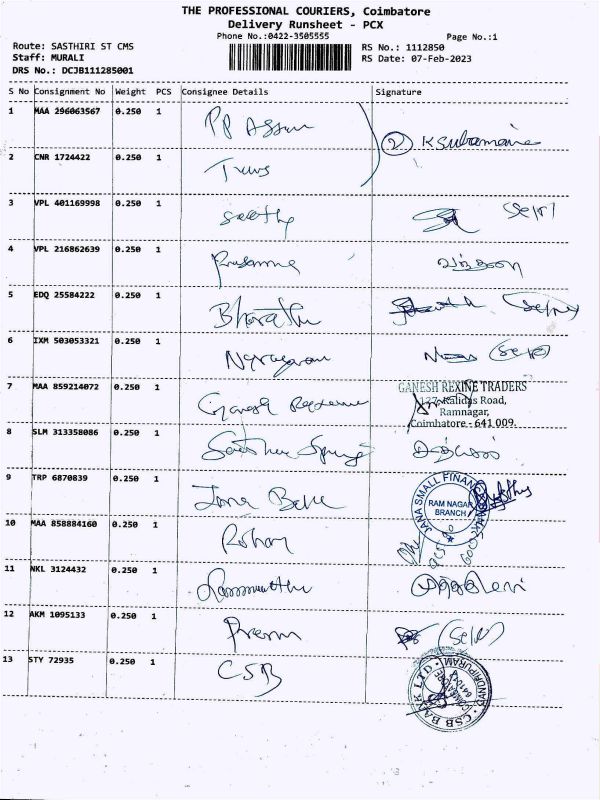 THE PROFESSIONAL COURIERS, Coimbatore
Delivery Runsheet - PCX
Phone No.:0422-3505555
Page No.:1
Route: SASTHIRI ST CMS
RS No.: 1112850
Staff: MURALI
RS Date: 07-Feb-2023
DRS No.: DCJB111285001
S No Consignment No Weight PCS Consignee Details Signature
1 MAA 296063567 0.250 1
2 K Subramani
2 CNR 1724422 0.250 1
3 VPL 401169998 0.250 1 Seethy (Self)
4 VPL 216862639 0.250 1 Prasanna
5 EDQ 25584222 0.250 1 Bharathi (Self)
6 IXM 503053321 0.250 1 Narayanan (Self)
7 MAA 859214072 0.250 1 Ganesh Rexine GANESH REXINE TRADERS
127, Kalidas Road,
Ramnagar,
Coimbatore - 641 009.
8 SLM 313358086 0.250 1
9 TRP 6870839 0.250 1 Jana Bank JANA SMALL FINANCE BANK
RAM NAGAR
BRANCH
10 MAA 858884160 0.250 1 Rohan
11 NKL 3124432 0.250 1
12 AKM 1095133 0.250 1 Prem (Self)
13 STY 72935 0.250 1 CSB CSB BANK LTD.